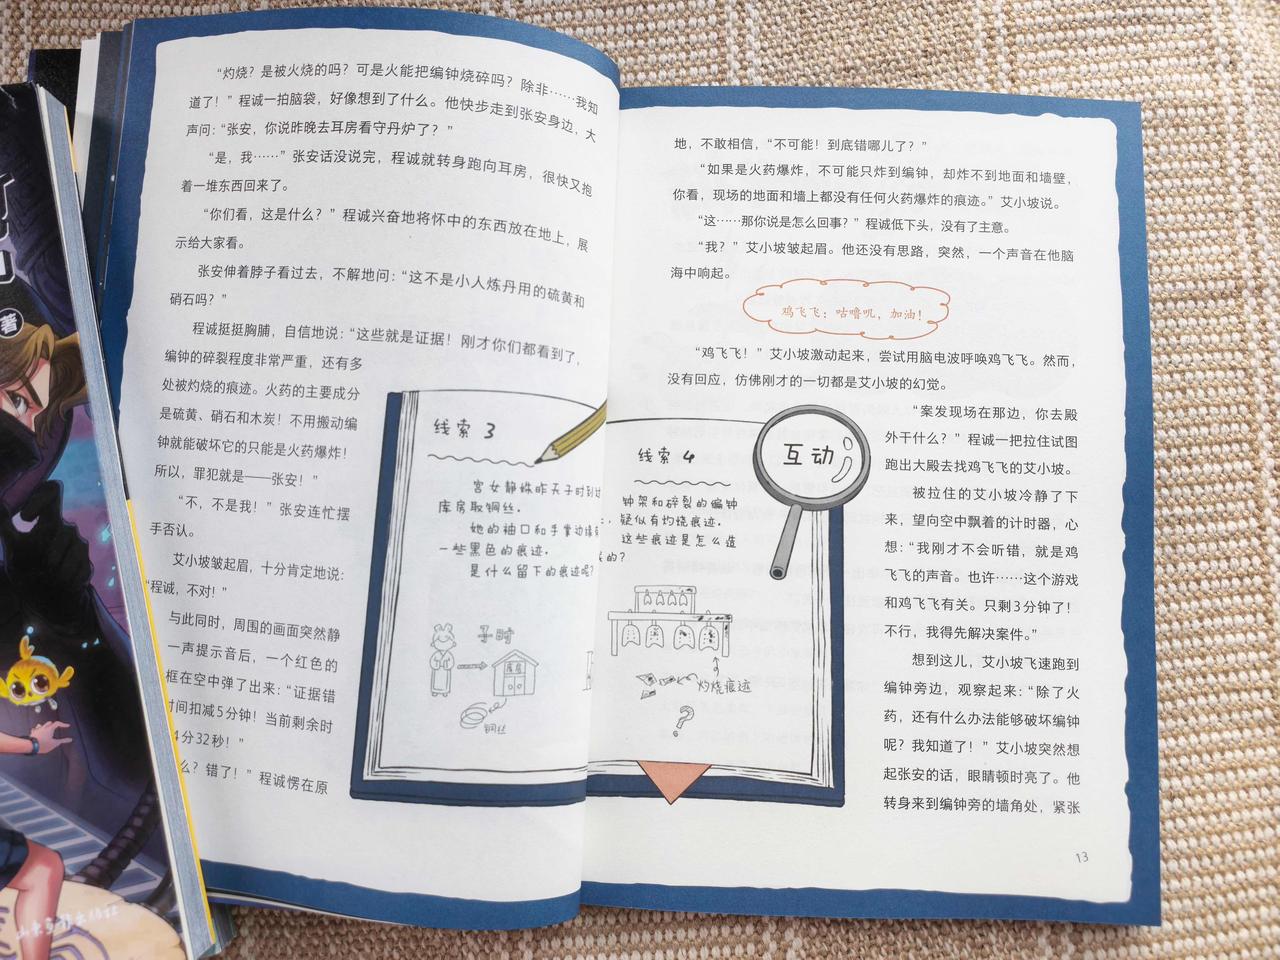 “灼烧？是被火烧的吗？可是火能把编钟烧碎吗？除非……我知
道了！”程诚一拍脑袋，好像想到了什么。他快步走到张安身边，大
声问：“张安，你说昨晚去耳房看守丹炉了？”
“是，我……”张安话没说完，程诚就转身跑向耳房，很快又抱
着一堆东西回来了。
“你们看，这是什么？”程诚兴奋地将怀中的东西放在地上，展
示给大家看。
张安伸着脖子看过去，不解地问：“这不是小人炼丹用的硫黄和
硝石吗？”
程诚挺挺胸脯，自信地说：“这些就是证据！刚才你们都看到了，
编钟的碎裂程度非常严重，还有多
处被灼烧的痕迹。火药的主要成分
是硫黄、硝石和木炭！不用搬动编
钟就能破坏它的只能是火药爆炸！
所以，罪犯就是——张安！”
“不，不是我！”张安连忙摆
手否认。
艾小坡皱起眉，十分肯定地说：
“程诚，不对！”
与此同时，周围的画面突然静
一声提示音后，一个红色的
框在空中弹了出来：“证据错
时间扣减5分钟！当前剩余时
4分32秒！”
么？错了！”程诚愣在原
线索 3
宫女静姝昨天子时到过
库房取铜丝。
她的袖口和手掌边缘有
一些黑色的痕迹。
是什么留下的痕迹呢？
子时
库房
铜丝
地，不敢相信，“不可能！到底错哪儿了？”
“如果是火药爆炸，不可能只炸到编钟，却炸不到地面和墙壁，
你看，现场的地面和墙上都没有任何火药爆炸的痕迹。”艾小坡说。
“这……那你说是怎么回事？”程诚低下头，没有了主意。
“我？”艾小坡皱起眉。他还没有思路，突然，一个声音在他脑
海中响起。
鸡飞飞：咕噜叽，加油！
“鸡飞飞！”艾小坡激动起来，尝试用脑电波呼唤鸡飞飞。然而，
没有回应，仿佛刚才的一切都是艾小坡的幻觉。
线索 4
互动
钟架和碎裂的编钟
，疑似有灼烧痕迹。
这些痕迹是怎么造
成的？
灼烧痕迹
?
“案发现场在那边，你去殿
外干什么？”程诚一把拉住试图
跑出大殿去找鸡飞飞的艾小坡。
被拉住的艾小坡冷静了下
来，望向空中飘着的计时器，心
想：“我刚才不会听错，就是鸡
飞飞的声音。也许……这个游戏
和鸡飞飞有关。只剩3分钟了！
不行，我得先解决案件。”
想到这儿，艾小坡飞速跑到
编钟旁边，观察起来：“除了火
药，还有什么办法能够破坏编钟
呢？我知道了！”艾小坡突然想
起张安的话，眼睛顿时亮了。他
转身来到编钟旁的墙角处，紧张
13
著